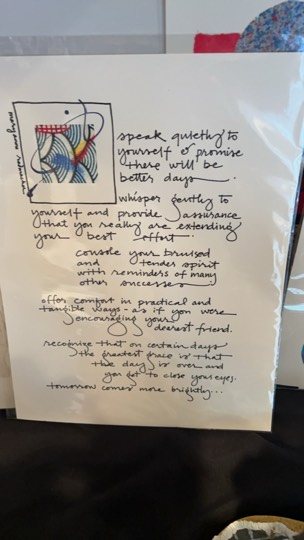 speak quietly to
yourself & promise
there will be
better days.
whisper gently to
yourself and provide assurance
that you really are extending
your best effort.
console your bruised
and tender spirit
with reminders of many
other successes.
offer comfort in practical and
tangible ways - as if you were
encouraging your
dearest friend.
recognize that on certain days
the greatest grace is that
the day is over and
you get to close your eyes.
tomorrow comes more brightly...